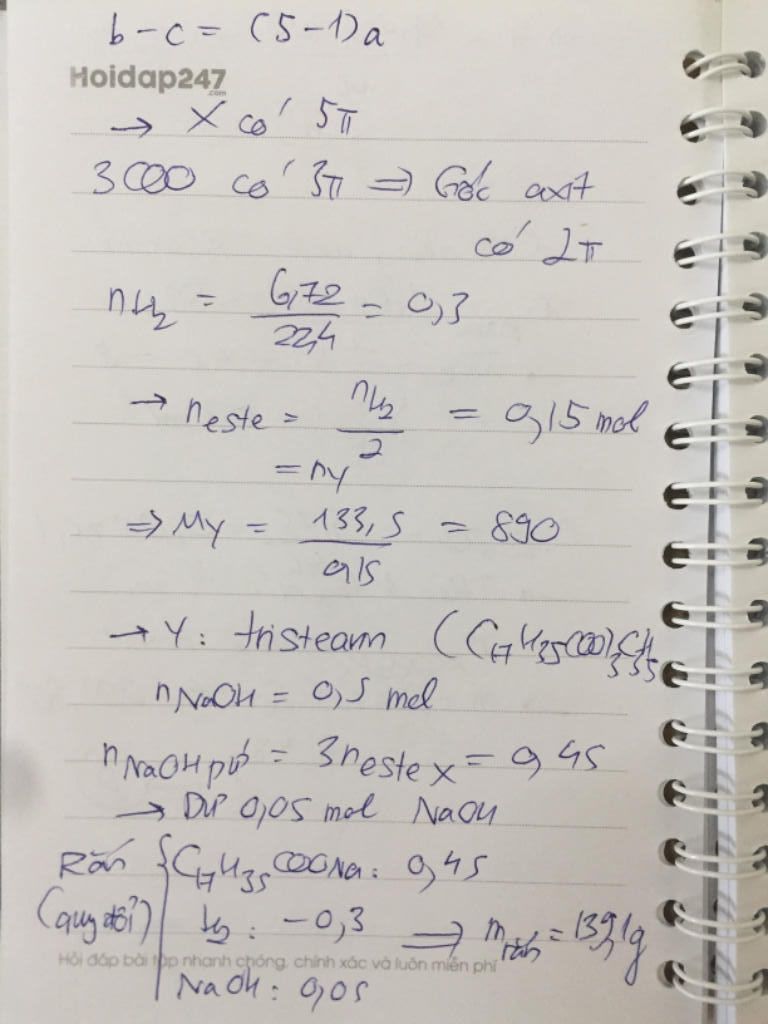 b - c = (5-1)a
Hoidap247
.com
→ X có 5π
3 COO có 3π ⇒ Gốc axit
có 2π
nH₂ = 6,72/22,4 = 0,3
→ neste = nH₂/2 = 0,15 mol
= nY
⇒ MY = 133,5/0,15 = 890
→ Y: tristearin (C₁₇H₃₅COO)₃C₃H₅
nNaOH = 0,5 mol
nNaOH pứ = 3neste X = 0,45
→ Dư 0,05 mol NaOH
Rắn { C₁₇H₃₅COONa: 0,45
(quy đổi) H₂: -0,3 ⇒ mrắn = 139,1g
Hỏi đáp bài tập nhanh chóng, chính xác và luôn miễn phí
NaOH: 0,05